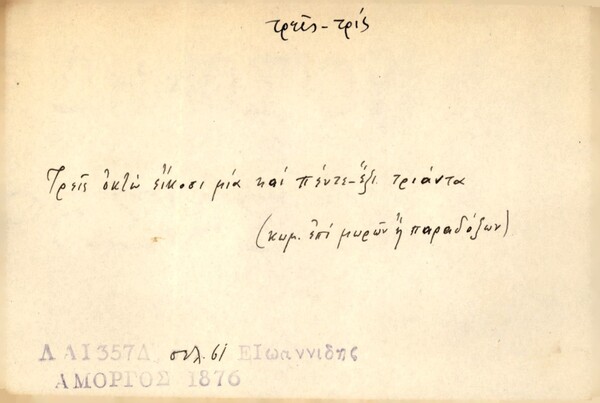 τρεῖς - τρίς
Τρεῖς ὀκτὼ εἴκοσι μία καὶ πέντε-ἕξι τριάντα
(κωμ. ἐπὶ μωρῶν ἢ παραδόξων)
ΛΑ 1357Δ σελ. 61 ΕΙωαννιδης
ΑΜΟΡΓΟΣ 1876